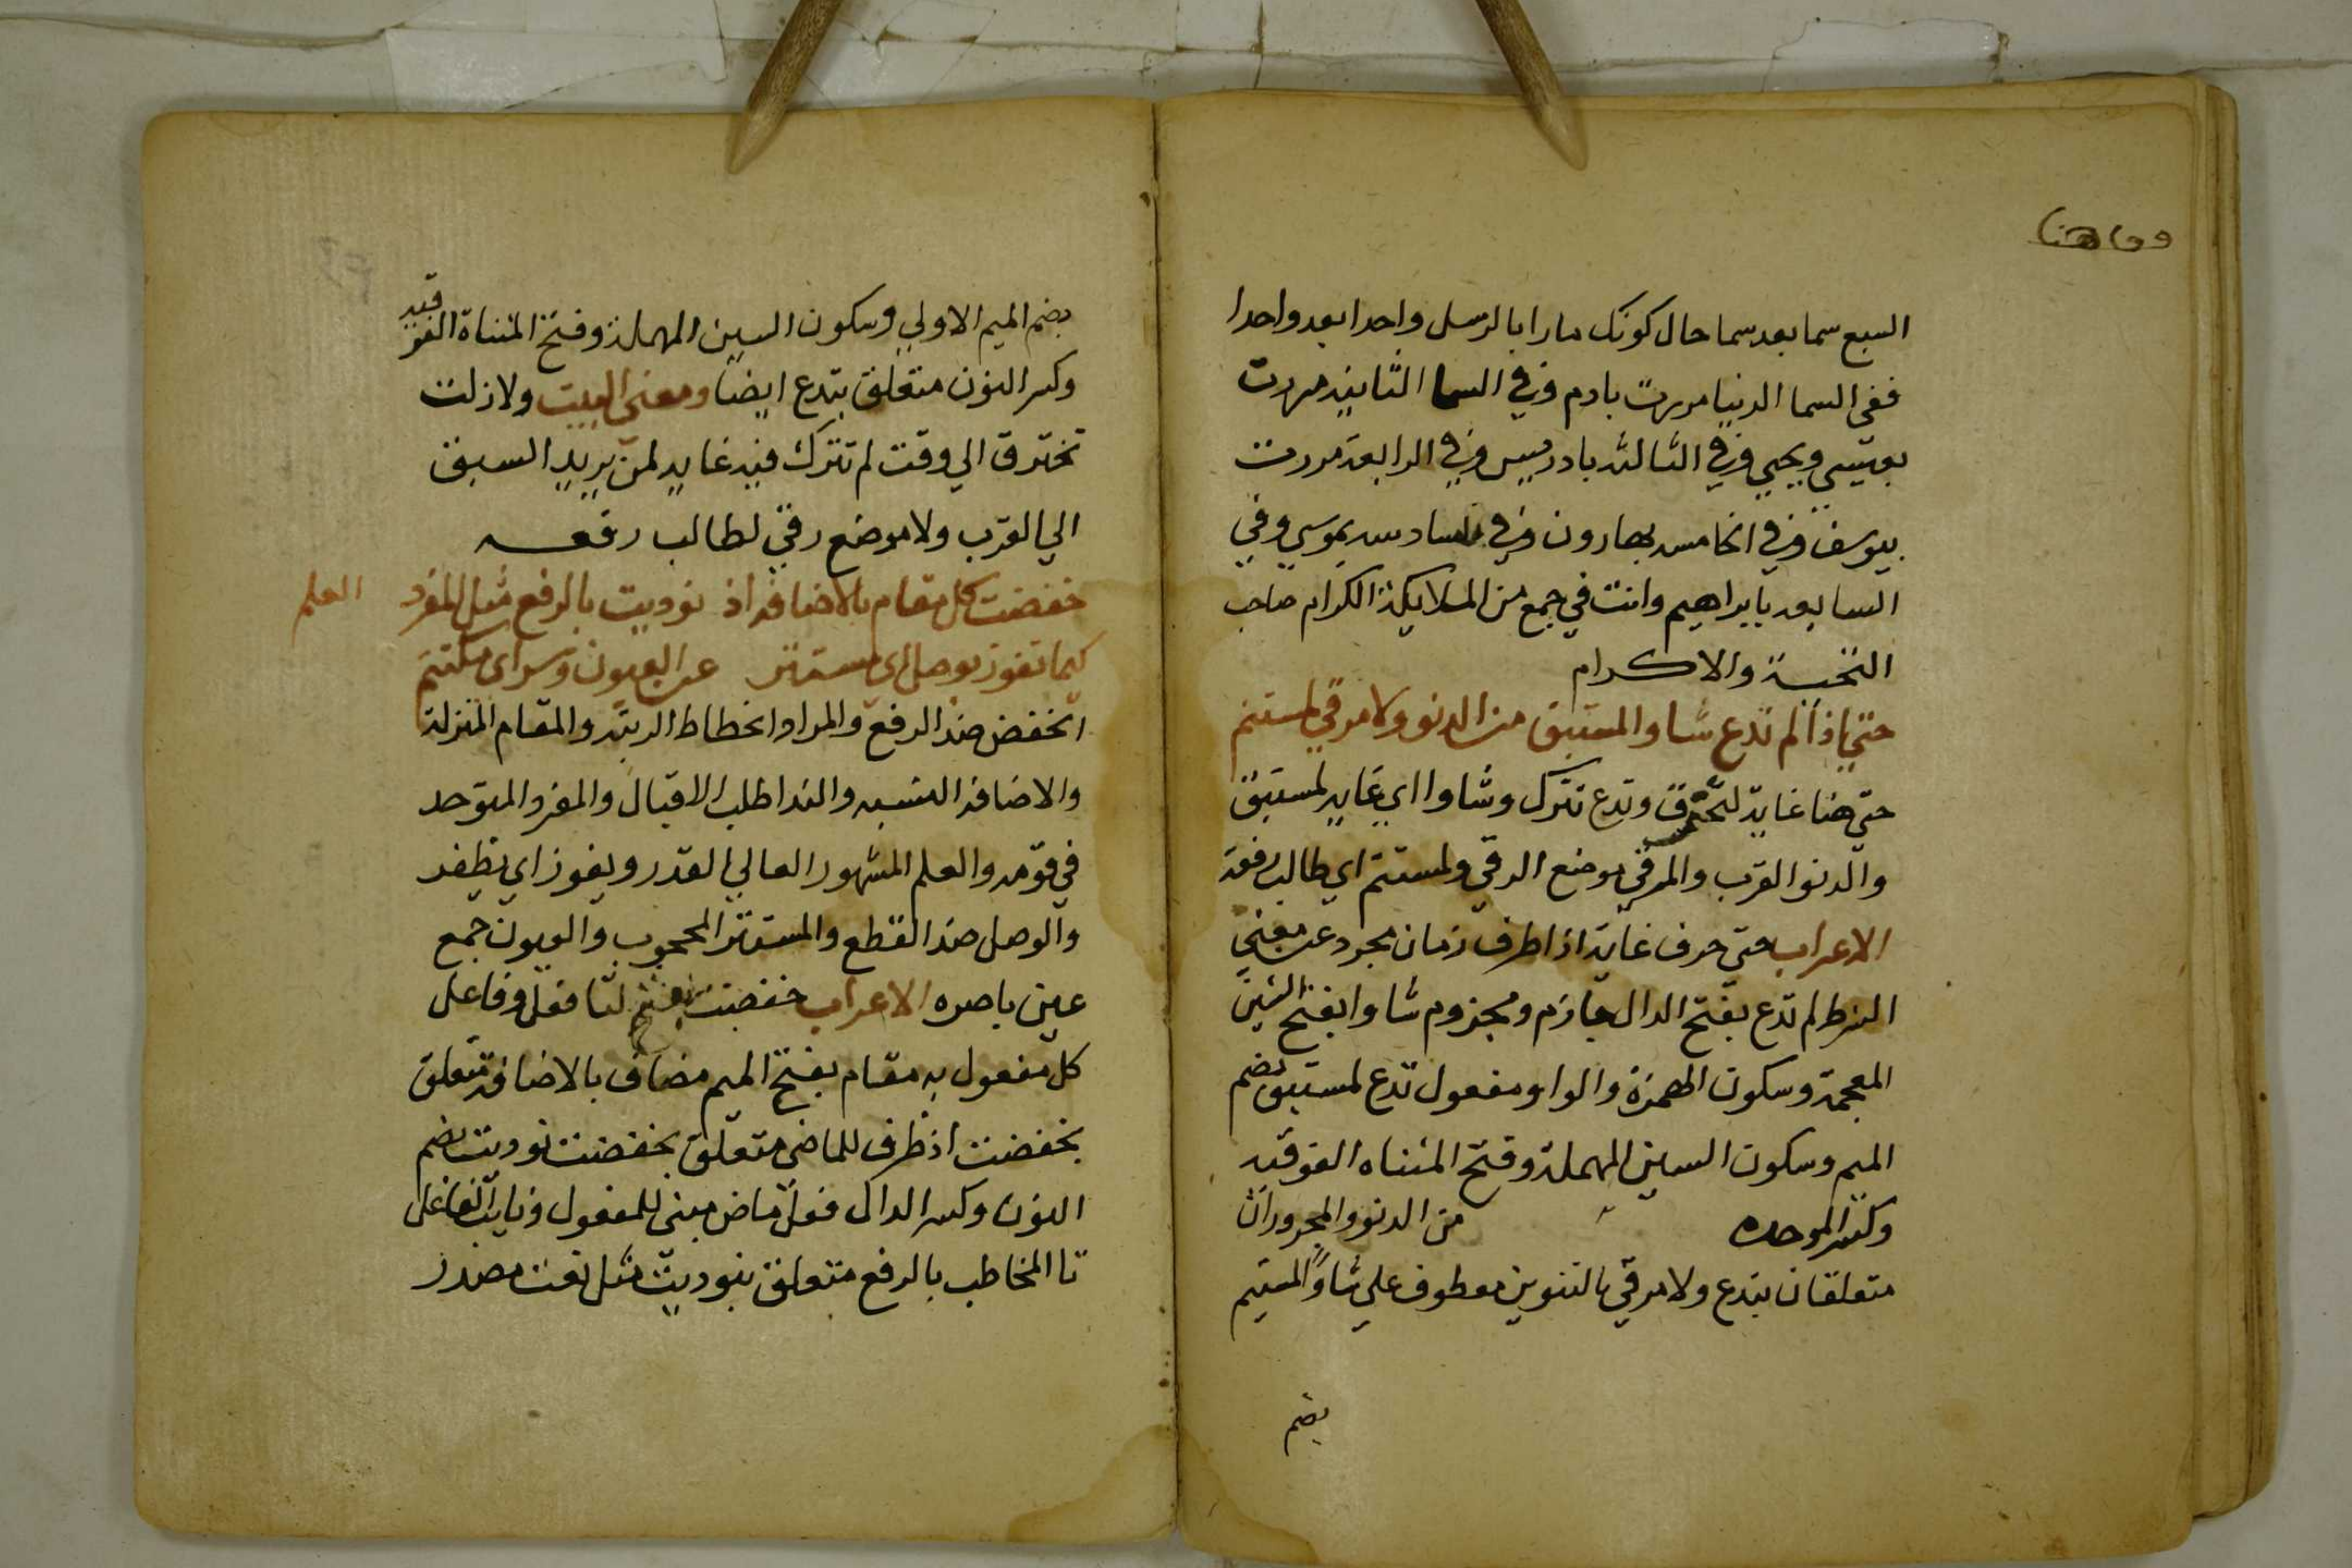 السبع سما بعد سما حال كونك مارا بالرسل واحدا بعد واحدا
ففي السما الدنيا مررت بادم وفي السما الثانيه مررت
بعيسي ويحيي وفي الثالثه بادريس وفي الرابعة مررت
بيوسف وفي الخامسه بهارون وفي السادسه بموسي وفي
السابعه بابراهيم وانت في جمع من الملايكة الكرام صاحب
التحية والاكرام
حتي اذا لم تدع شاوا لمستبق من الدنو ولا مرقي لمستنم
حتي هنا غاية لتخترق وتدع تترك وشاوا اي غايه لمستبق
والدنو القرب والمرقي موضع الرقي ولمستنم اي طالب رفعة
الاعراب حتي حرف غاية اذا ظرف زمان مجرد عن معني
الشرط لم تدع بفتح الدال جازم ومجزوم شاوا بفتح الشين
المعجمة وسكون الهمزة والواو مفعول تدع لمستبق بضم
الميم وسكون السين المهملة وفتح المثناه الفوقيه
وكسر الموحده من الدنو والمجروران
متعلقان بتدع ولا مرقي بالتنوين معطوف علي شاوا لمستنم
بضم
بضم الميم الاولي وسكون السين المهملة وفتح المثناة الفوقيه
وكسر النون متعلق بتدع ايضا ومعني البيت ولا زلت
تخترق الي وقت لم تترك فيه غايه لمن يريد السبق
الي القرب ولا موضع رقي لطالب رفعه
خفضت كل مقام بالاضافة اذ نوديت بالرفع مثل المفرد العلم
كيما تفوز بوصل اي مستتر عن العيون وسر اي مكتتم
الخفض ضد الرفع والمراد انحطاط الرتبه والمقام المنزلة
والاضافة النسبه والندا طلب الاقبال والمفرد المتوحد
في قومه والعلم المشهور العالي القدر ويفوز اي يظفر
والوصل ضد القطع والمستتر المحجوب والعيون جمع
عين باصره الاعراب خفضت بفتح التا فعل وفاعل
كل مفعول به مقام بفتح الميم مضاف بالاضافة متعلق
بخفضت اذ ظرف للماضي متعلق بخفضت نوديت بضم
النون وكسر الدال فعل ماض مبني للمفعول ونايب الفاعل
تا المخاطب بالرفع متعلق بنوديت مثل نعت مصدر